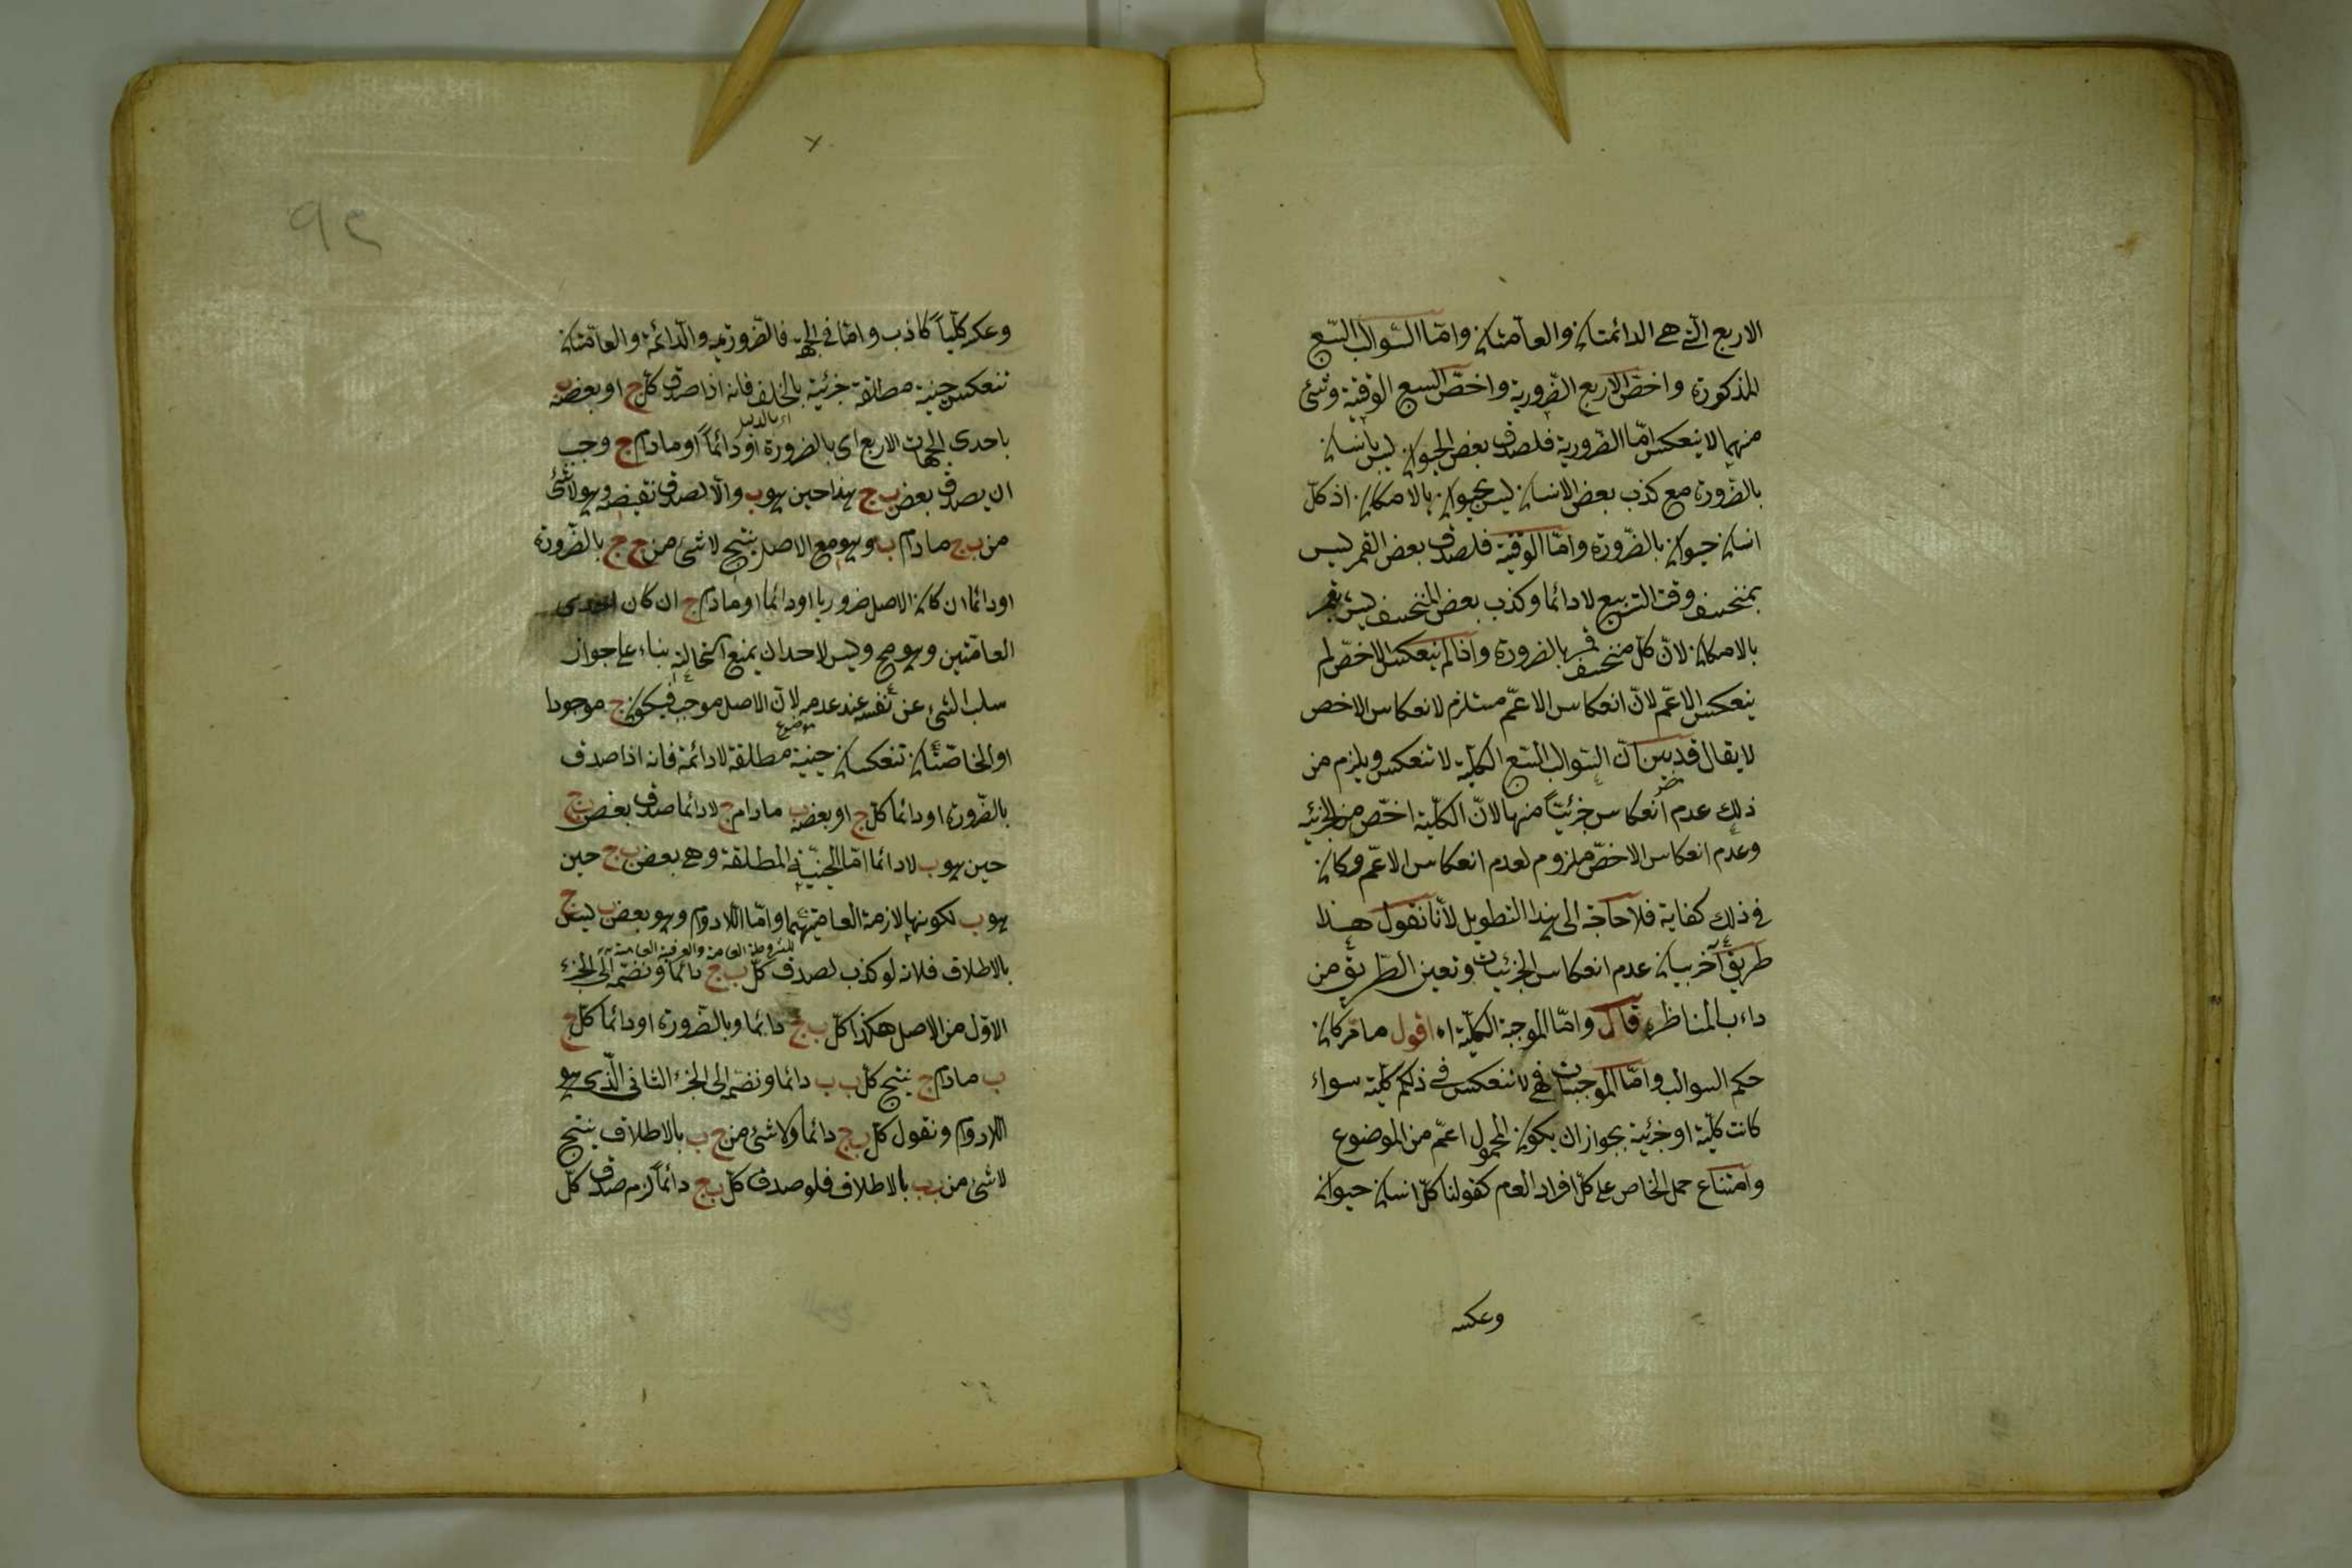 الاربع الّتى هى الدائمتان والعامّتان وامّا السّوالب السّبع
المذكورة واخصّ الاربع الضّرورية واخصّ السبع الوقتية وشئ
منهما لا ينعكس امّا الضّرورية فلصدق بعض الحيوان ليس بانسان
بالضّرورة مع كذب بعض الانسان ليس بحيوان بالامكان اذ كلّ
انسان حيوان بالضّرورة وامّا الوقتية فلصدق بعض القمر ليس
بمنخسف وقت التربيع لا دائما وكذب بعض المنخسف ليس بقمر
بالامكان لانّ كلّ منخسف قمر بالضرورة واذا لم ينعكس الاخصّ لم
ينعكس الاعمّ لانّ انعكاس الاعمّ مستلزم لانعكاس الاخص
لا يقال قد بين انّ السّوالب السّبع الكلّية لا تنعكس ويلزم من
ذلك عدم انعكاس جزئيّاتها لانّ الكلّية اخصّ من الجزئيه
وعدم انعكاس الاخصّ ملزوم لعدم انعكاس الاعمّ وكان
فى ذلك كفاية فلا حاجة الى هذا التطويل لأنا نقول هذا
طريق آخر لبيان عدم انعكاس الجزئيات وتعين الطّريق من
داءب المناظره قال وامّا الموجبة الكلّية اه اقول ما مرّ كان
حكم السوالب وامّا الموجبات فهى لا تنعكس فى ذلكم كلّية سواء
كانت كلّية او جزئية بجواز ان يكون المحمول اعمّ من الموضوع
وامتناع حمل الخاص على كلّ افراد العام كقولنا كلّ انسان حيوان
وعكسه
٩٢
وعكسه كلّياً كاذب وامّا فى الجهة فالضّروريه والدّائمة والعامّتان
تنعكس حينية مطلقة جزئية بالخلف فانه اذا صدق كلّ ج او بعضه ب
باحدى الجهات الاربع اى بالضرورة او دائماً او مادام ج وجب
ان يصدق بعض ب ج هذا حين هو ب والّا لصدق نقيضه وهو لا شئ
من ب ج مادام ب وهو مع الاصل ينتج لا شئ من ج ج بالضّرورة
او دائما ان كان الاصل ضروريا او دائما او مادام ج ان كان احدى
العامّتين وهو مح وليس لاحد ان يمنع استحالته بناء على جواز
سلب الشئ عن نفسه عند عدمه لانّ الاصل موجب فيكون ج موجودا
او الخاصّتان تنعكسان حينية مطلقة لا دائمة فانه اذا صدق
موضوع
بالضّرورة او دائما كلّ ج او بعضه ب مادام ج لا دائما صدق بعض ب ج
حين هو ب لا دائما امّا الحينيّة المطلقة وهى بعض ب ج حين
هو ب لكونها لازمة لعامّتيهما وامّا اللادوام وهو بعض ب ليس ج
للمشروطة العامة والعرفية العامة
بالاطلاق فلانه لو كذب لصدق كلّ ب ج دائما ونضمّه الى الجزء
الاوّل من الاصل هكذا كلّ ب ج دائما وبالضّرورة او دائما كلّ ج
ب مادام ج ينتج كلّ ب ب دائما ونضمّه الى الجزء الثانى الّذى هو
اللادوام ونقول كلّ ب ج دائما ولا شئ من ج ب بالاطلاق ينتج
لا شئ من ب ب بالاطلاق فلو صدق كلّ ب ج دائماً لزم صدق كلّ